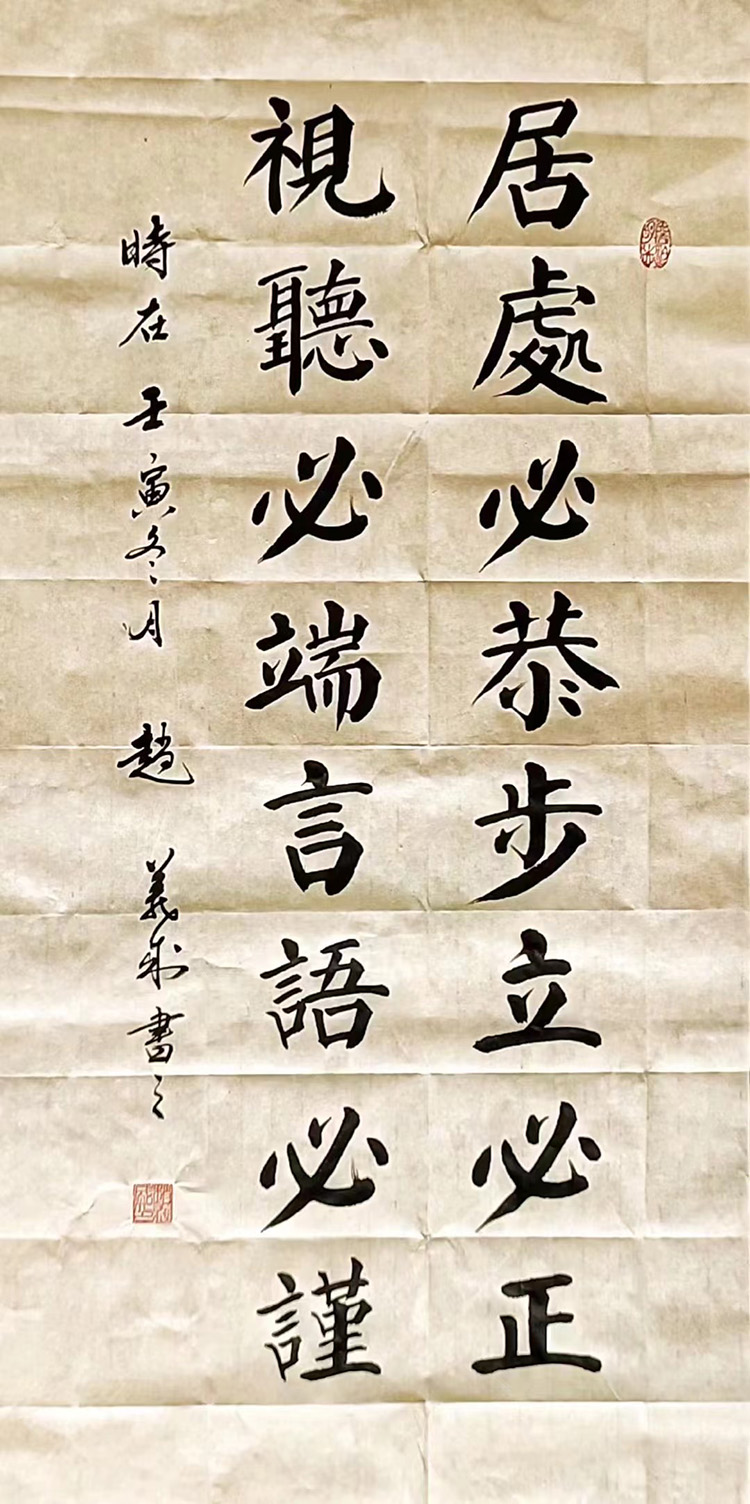 居處必恭步立必正
視聽必端言語必謹
時在壬寅冬月 趙義成書之